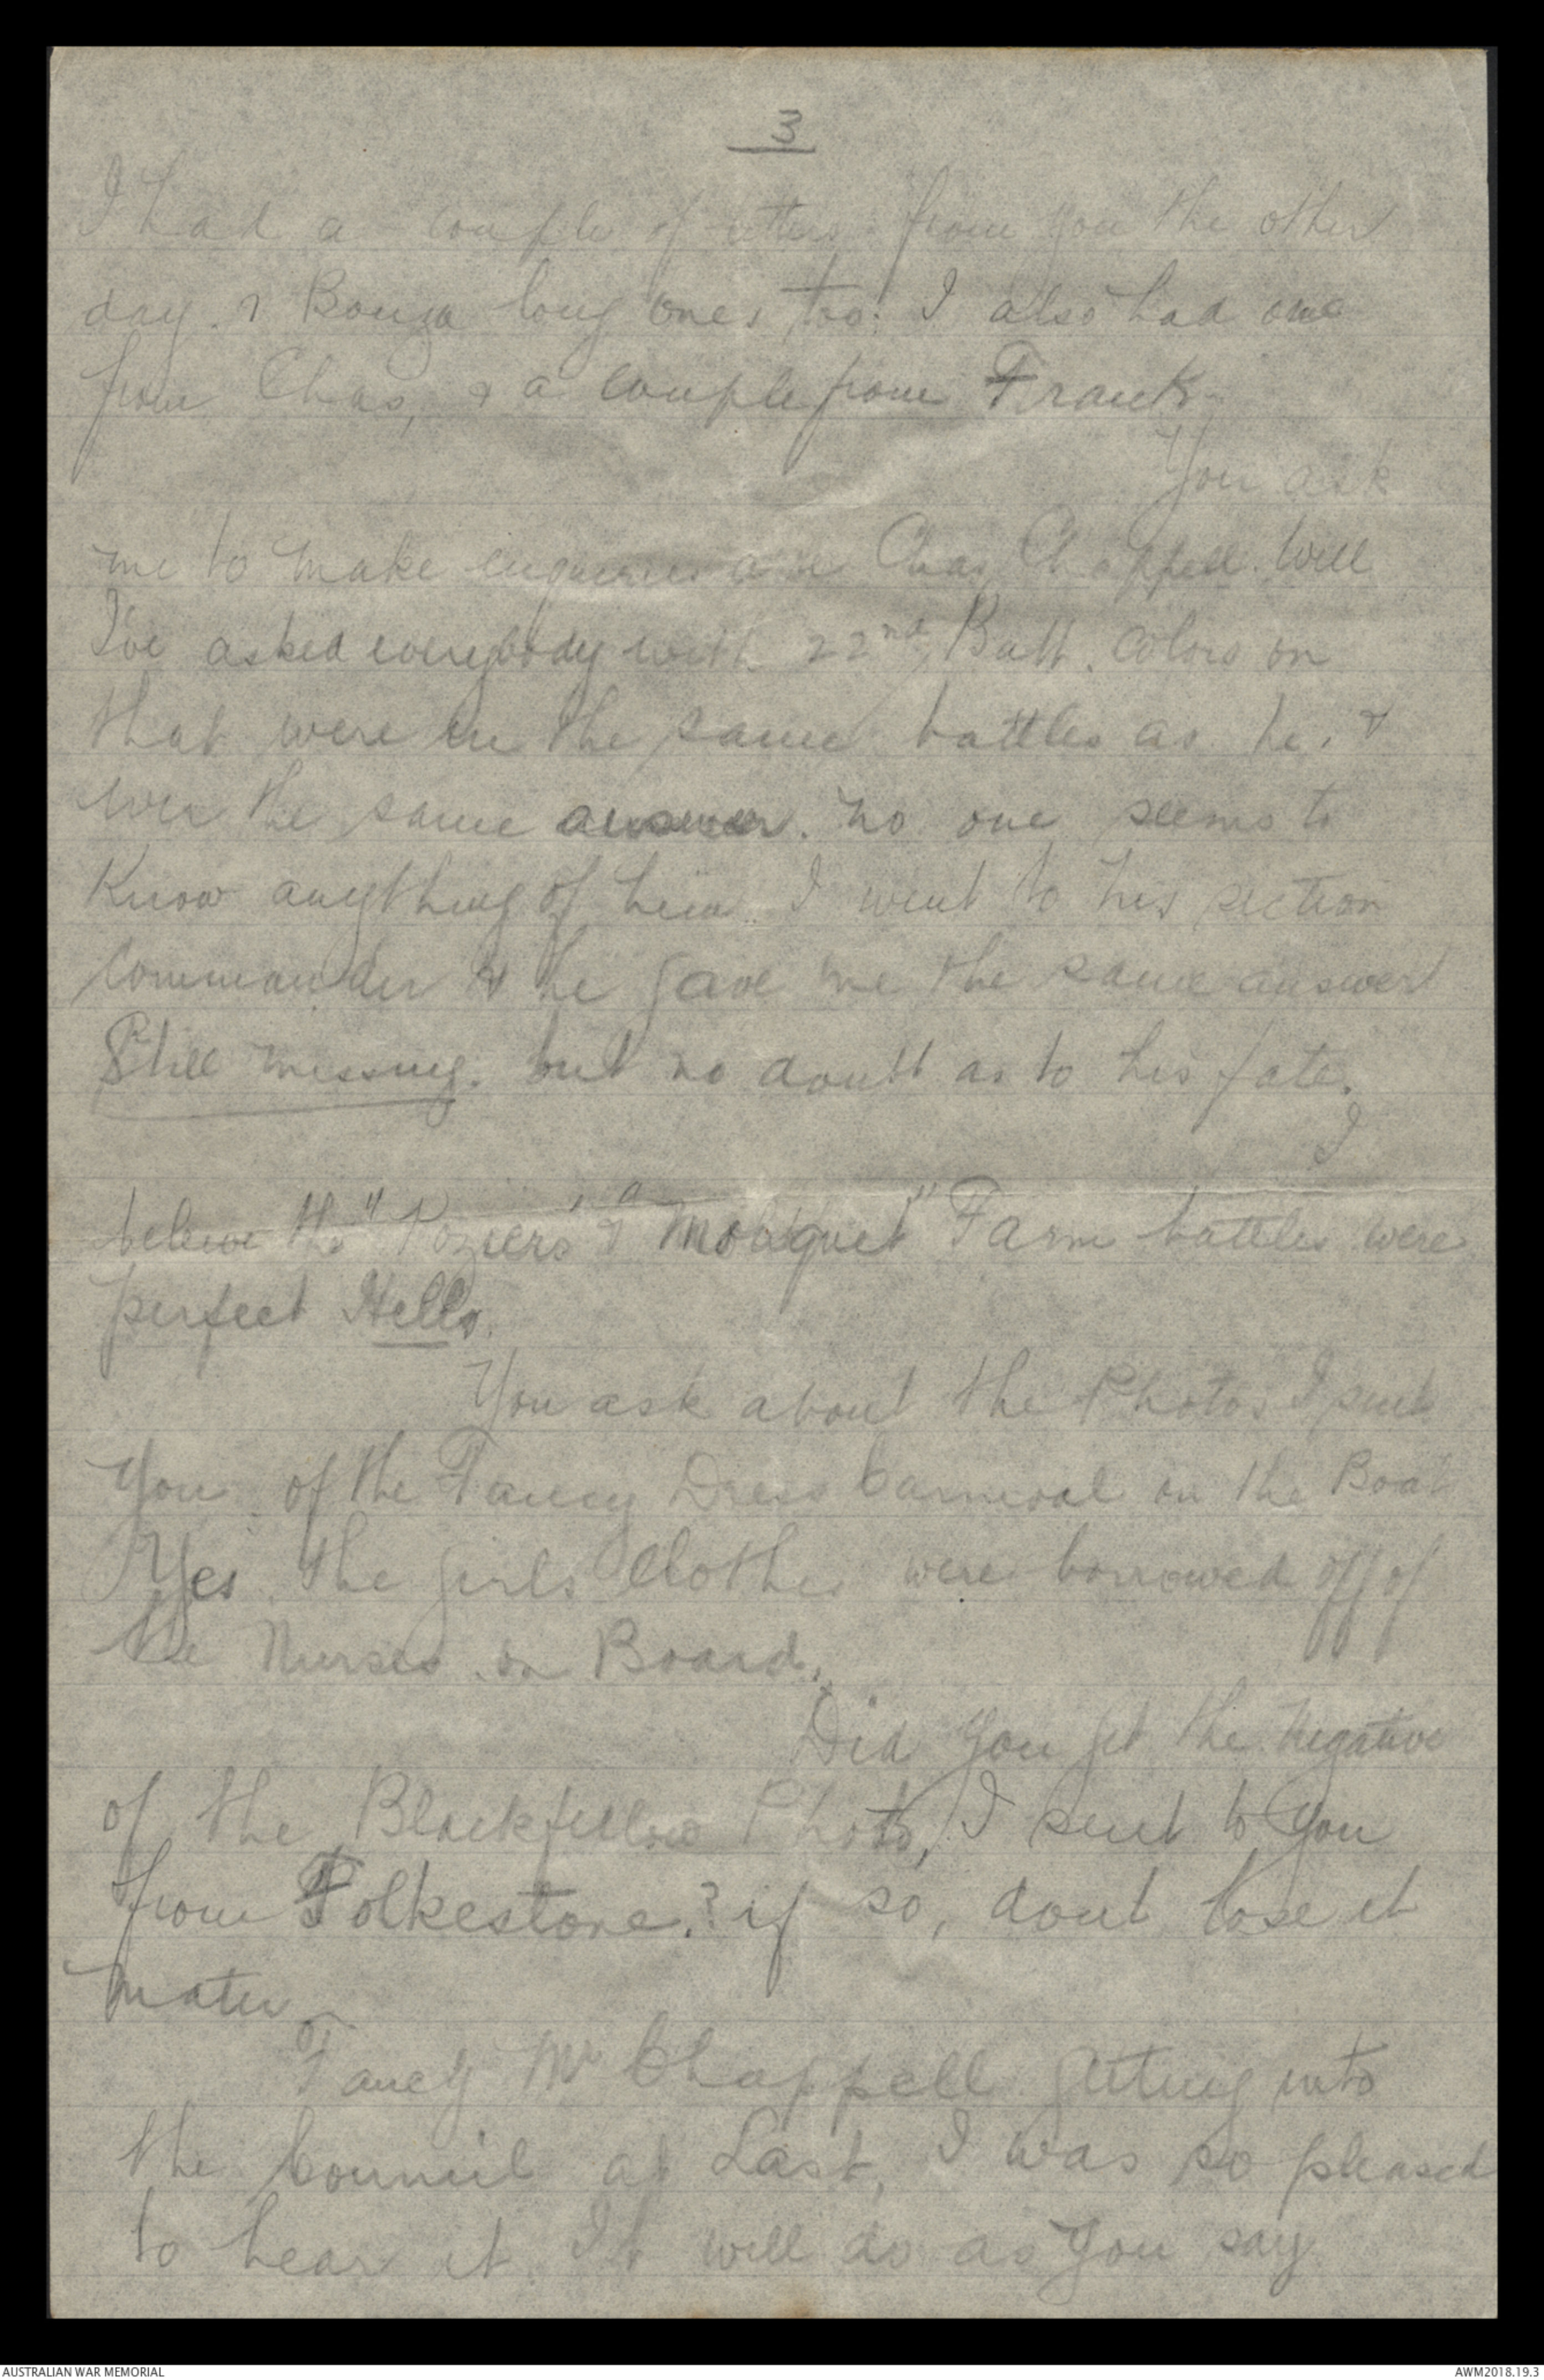 3
I had a couple of letters from you the other
day. & Bonza long ones too. I also had one
from Chas, & a couple from Frank.
You ask
me to make enquiries are Chas Chappell. Well
I've asked everybody with 22nd Batt. Colors on
that were in the same battles as he, &
ever the same answer. No one seems to
Know anything of him. I went to his section
Commander & he gave me the same answer
Still missing. but no doubt as to his fate.
I
believe the "Poziers" & "Mouquet" Farm battles were
perfect Hells.
You ask about the Photos I sent
you of the Fancy Dress Carnival on the Boat
Yes. the girls Clothes were borrowed off of
the Nurses on Board.
Did you get the negative
of the Blackfellow Photo, I sent to you
from Folkestone.? if so, dont lose it
Mater.
Fancy Mr Chappell getting into
the Council at Last, I was so pleased
to hear it. It will do as you say
AUSTRALIAN WAR MEMORIAL
AWM2018.19.3